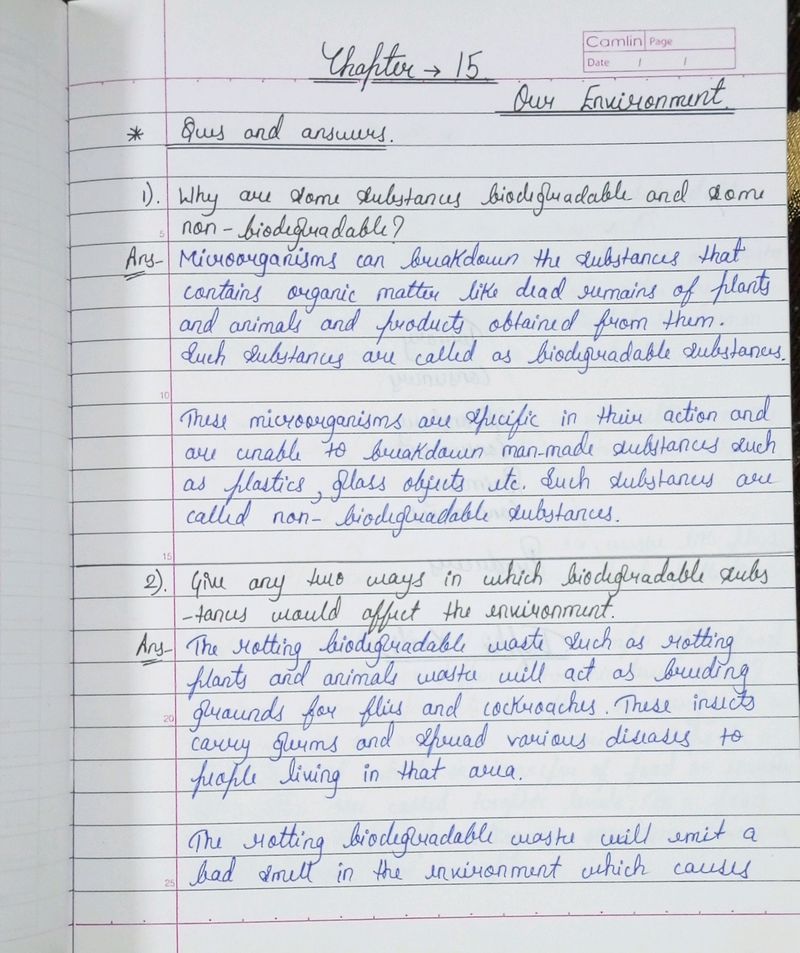 Chapter → 15
Camlin Page
Date / /
Our Environment
* Ques and answers.
1). Why are some substances biodegradable and some
5
non-biodegradable?
Ans- Microorganisms can breakdown the substances that
contains organic matter like dead remains of plants
and animals and products obtained from them.
Such substances are called as biodegradable substances.
10
These microorganisms are specific in their action and
are unable to breakdown man-made substances such
as plastics, glass objects etc. Such substances are
called non-biodegradable substances.
15
2). Give any two ways in which biodegradable subs
-tances would affect the environment.
Ans- The rotting biodegradable waste such as rotting
plants and animals waste will act as breeding
20
grounds for flies and cockroaches. These insects
carry germs and spread various diseases to
people living in that area.
The rotting biodegradable waste will emit a
25
bad smell in the environment which causes